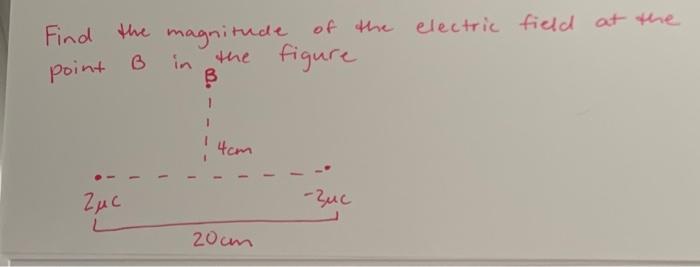 Find the magnitude of the electric field at the
point B in the figure
B
4cm
2μc
-3μc
20cm